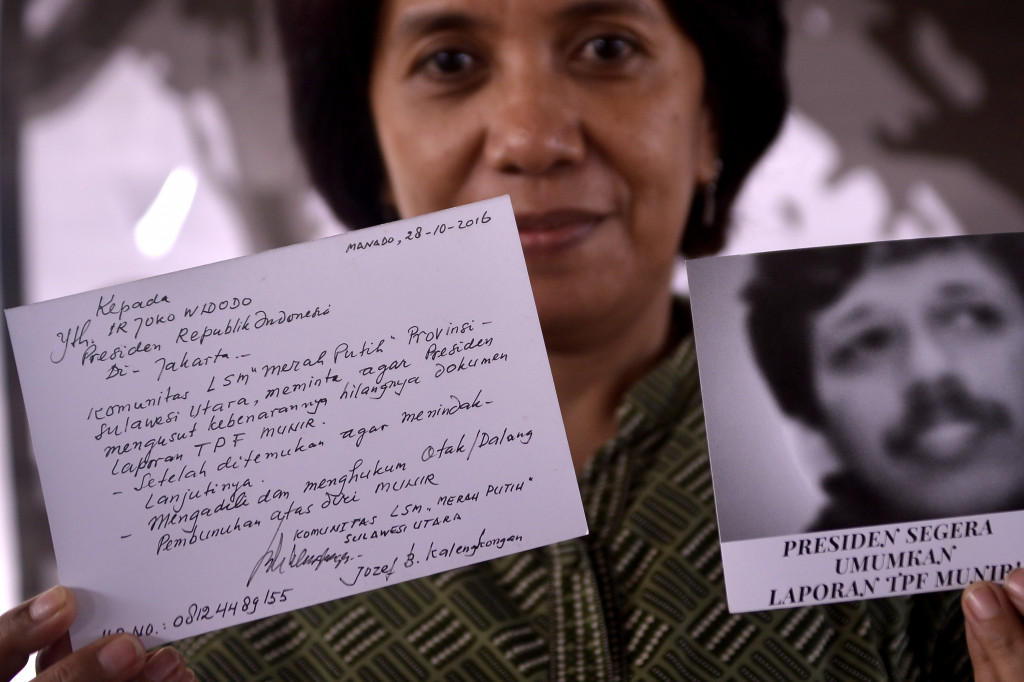 MANADO, 28-10-2016
Kepada
Yth. IR JOKO WIDODO
Presiden Republik Indonesia
Di - Jakarta.-
Komunitas LSM "Merah Putih" Provinsi -
Sulawesi Utara, meminta agar Presiden
mengusut kebenarannya hilangnya dokumen
Laporan TPF MUNIR.
- Setelah ditemukan agar menindak-
Lanjutinya.
- Mengadili dan menghukum Otak/Dalang
Pembunuhan atas diri MUNIR
KOMUNITAS LSM "MERAH PUTIH"
SULAWESI UTARA
Jozef B. Kalengkongan
NO.: 08124489155
PRESIDEN SEGERA
UMUMKAN
LAPORAN TPF MUNIR!